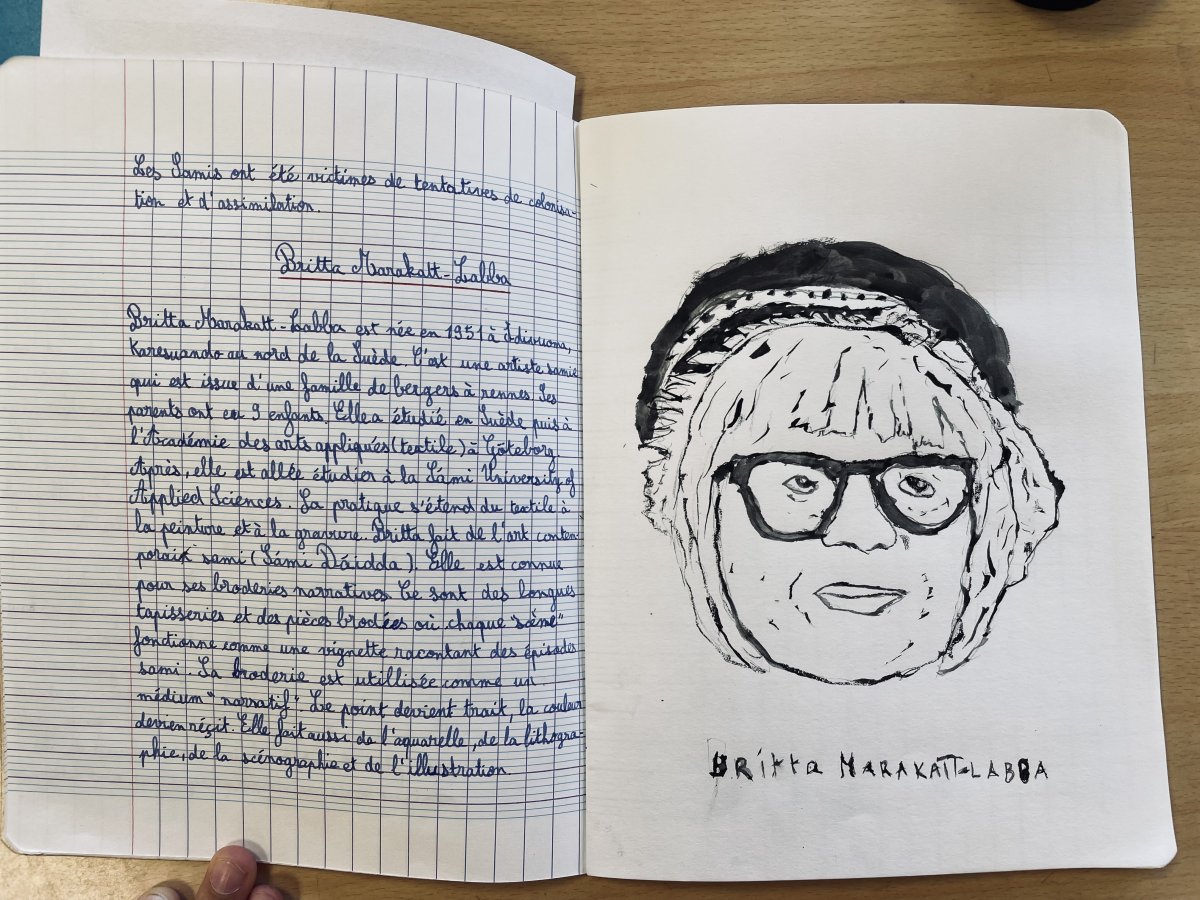 Les Samis ont été victimes de tentatives de colonisa-
tion et d'assimilation.
Britta Marakatt-Labba
Britta Marakatt-Labba est née en 1951 à Idivuoma,
Karesuando au nord de la Suède. C'est une artiste samie
qui est issue d'une famille de bergers à rennes. Ses
parents ont eu 9 enfants. Elle a étudié en Suède puis à
l'Académie des arts appliqués (textile) à Göteborg.
Après, elle est allée étudier à la Sámi University of
Applied Sciences. Sa pratique s'étend du textile à
la peinture et à la gravure. Britta fait de l'art contem-
porain sami (Sámi Dáidda). Elle est connue
pour ses broderies narratives. Ce sont des longues
tapisseries et des pièces brodées où chaque "scéne"
fonctionne comme une vignette racontant des épisodes
sami. Sa broderie est utillisée comme un
médium "narratif". Le point devient trait, la couleur
devien réçit. Elle fait aussi de l'aquarelle, de la lithogra-
phie, de la scénographie et de l'illustration.
Britta MARAKATT-LABBA